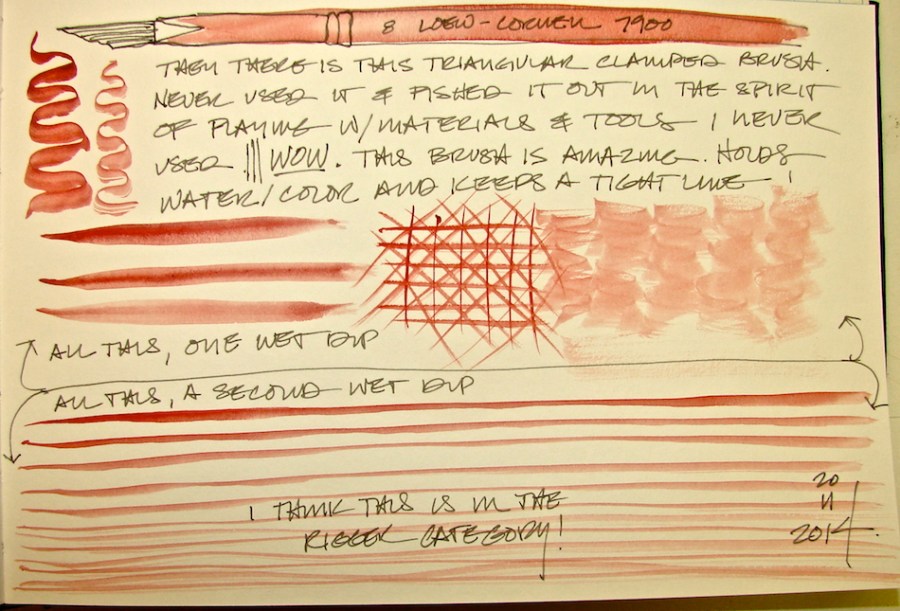 8 LOEW-CORNELL 7900
THEN THERE IS THIS TRIANGULAR CLAMPED BRUSH.
NEVER USED IT & FISHED IT OUT IN THE SPIRIT
OF PLAYING W/MATERIALS & TOOLS I NEVER
USED !!! WOW. THIS BRUSH IS AMAZING. HOLDS
WATER/COLOR AND KEEPS A TIGHT LINE!
ALL THIS, ONE WET DIP
ALL THIS, A SECOND WET DIP
I THINK THIS IS IN THE
RIGGER CATEGORY!
20
11
2014